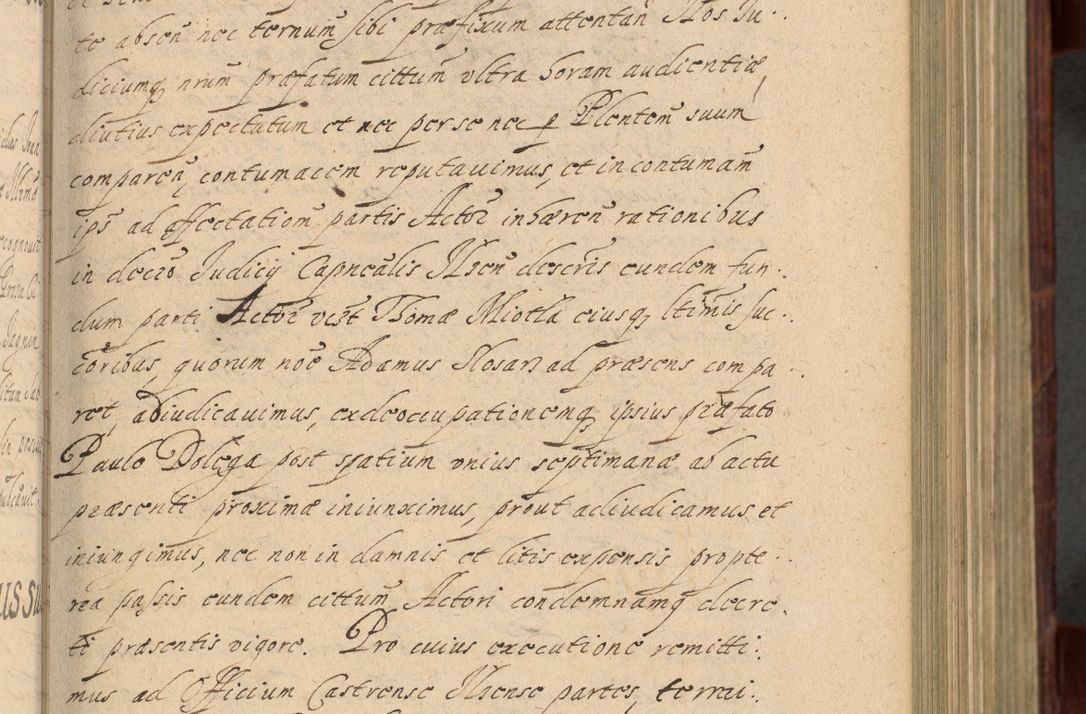 te absen̄ nec ternum sibi præfixum attentan̄ Nos Iu-
diciumq̨ nrum̄ præfatum cittum̄ vltra horam audientiæ
diutius expectatum et nec per se nec p Plentem̄ suum
comparen̄, contumacem reputauimus, et in contumam̄
ips̄ ad affectationē partis Actor̄ inhæren̄ rationibus
in decr̄o Judicij Cap̄nealis Nsen̄ descr̄is eundem fun-
dum parti Actor̄ vic̄t Thomæ Miotła eiusq̨ ltimis̄ suc-
coribus̄, quorum noē Adamus Slosarz ad præsens compa-
ret, adiudicauimus, exdeoccupationemq̨ ipsius præfato
Paulo Dolęga post spatium vnius septimanæ ab actu
præsenti proximæ iniunximus, prout adiudicamus et
iniungimus, nec non in damnis et litis expensis propte-
rea passis eundem cittum̄ Actori condemnamq̨ decre-
ti præsentis vigore. Pro cuius executione remitti-
mus ad Officium Castrense Nsense partes, termi-